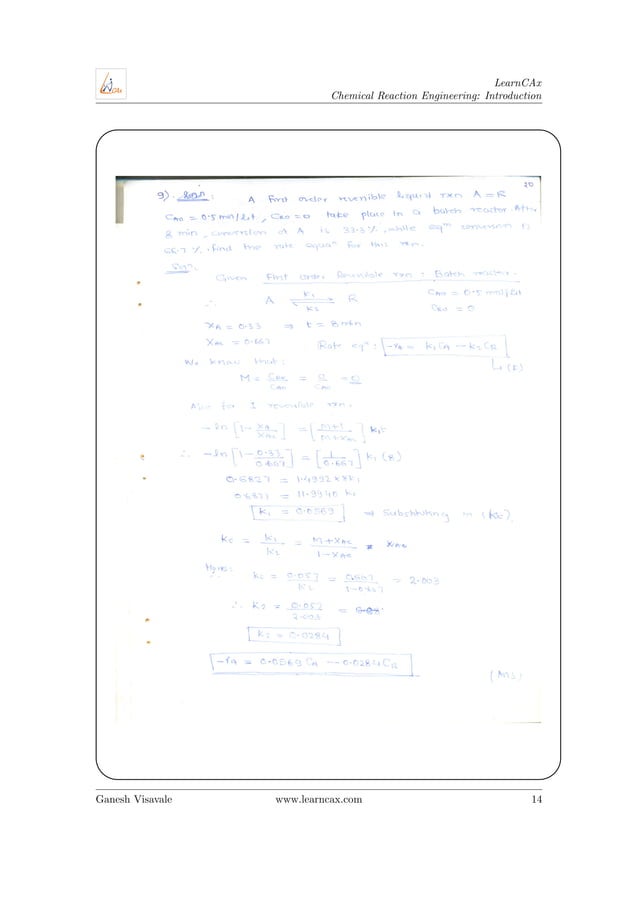 LearnCAx
Chemical Reaction Engineering: Introduction
20
A First order reversible liquid rxn A = R
CA0 = 0.5 mol/lit, CR0 = 0 take place in a batch reactor. After
8 min, conversion of A is 33.3 %, while eqm conversion is
66.7 %. find the rate equan for this rxn.
Given First order Reversible rxn : Batch reactor.
∴ A K1 ⇌ K2 R CA0 = 0.5 mol/lit
CR0 = 0
XA = 0.33 ⇒ t = 8 min
XAe = 0.667 Rate eqn: -rA = K1CA - K2CR
We know that:
M = CR0/CA0 = 0/CA0 = 0
Also for I reversible rxn.
-ln [1 - XA/XAe] = [M+1/M+XAe] K1t
∴ -ln [1 - 0.33/0.667] = [1/0.667] K1 (8)
0.6827 = 1.4992 × 8K1
0.6827 = 11.9940 K1
K1 = 0.0569 ⇒ Substituting in (Kc).
Kc = K1/K2 = M+XAe/1-XAe
∴ Kc = 0.057/K2 = 0.667/1-0.667 = 2.003
∴ K2 = 0.057/2.003
K2 = 0.0284
-rA = 0.0569 CA - 0.0284 CR
(Ans)
Ganesh Visavale www.learncax.com 14